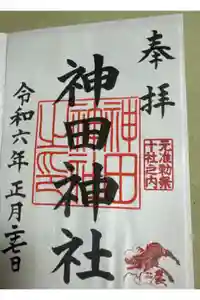 奉拝
元准勅祭
十社之内
神田神社
神田神社之印
令和六年正月二十七日